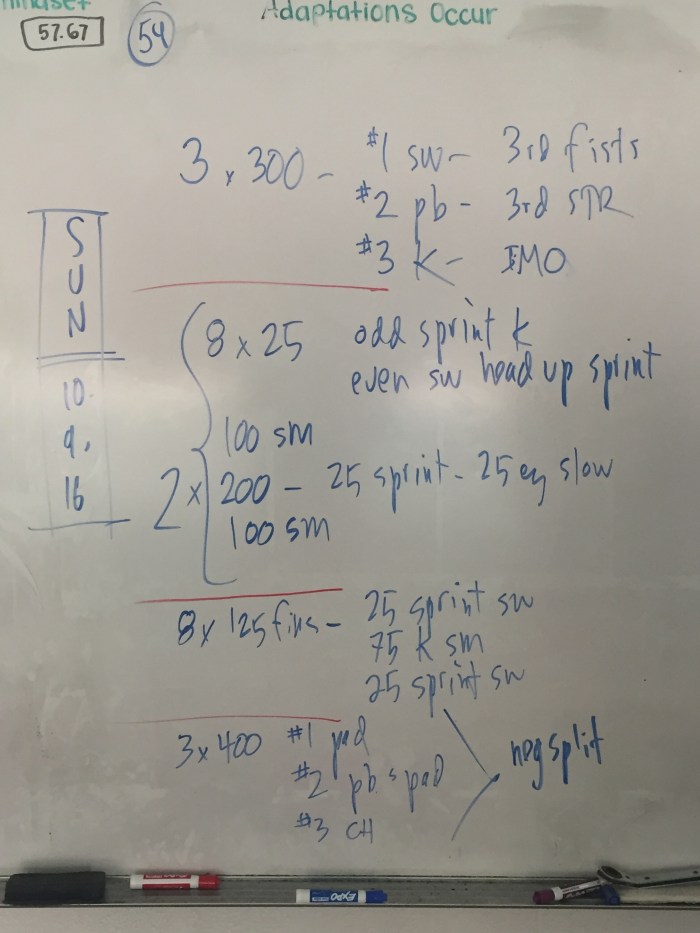 57.67
54
Adaptations Occur
SUN
10.
9.
16
3 x 300 - #1 sw - 3rd fists
#2 pb - 3rd STR
#3 K - IMO
8 x 25 odd sprint k
even sw head up sprint
100 sm
2 x 200 - 25 sprint - 25 ey slow
100 sm
8 x 125 fins - 25 sprint sw
75 K sm
25 sprint sw
3 x 400 #1 pad
#2 pb & pad
#3 CH
neg split
EXPO